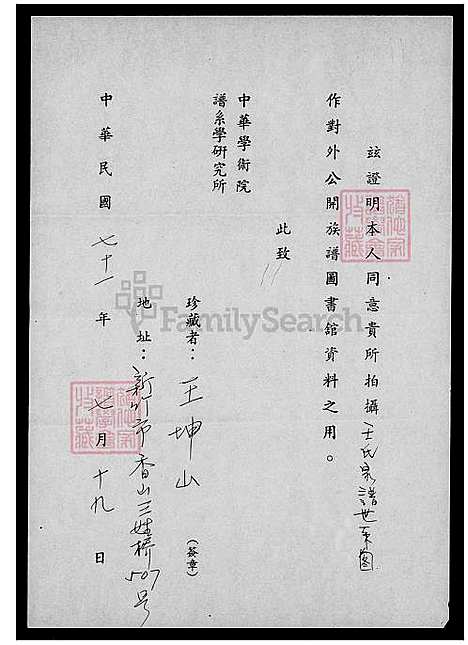 茲證明本人同意貴所拍攝王氏宗譜世系圖
作對外公開族譜圖書館資料之用。
此致
中華學術院
譜系學研究所
珍藏者：王坤山（簽章）
地址：新竹市香山三姓橋507号
中華民國七十一年七月十九日
FamilySearch